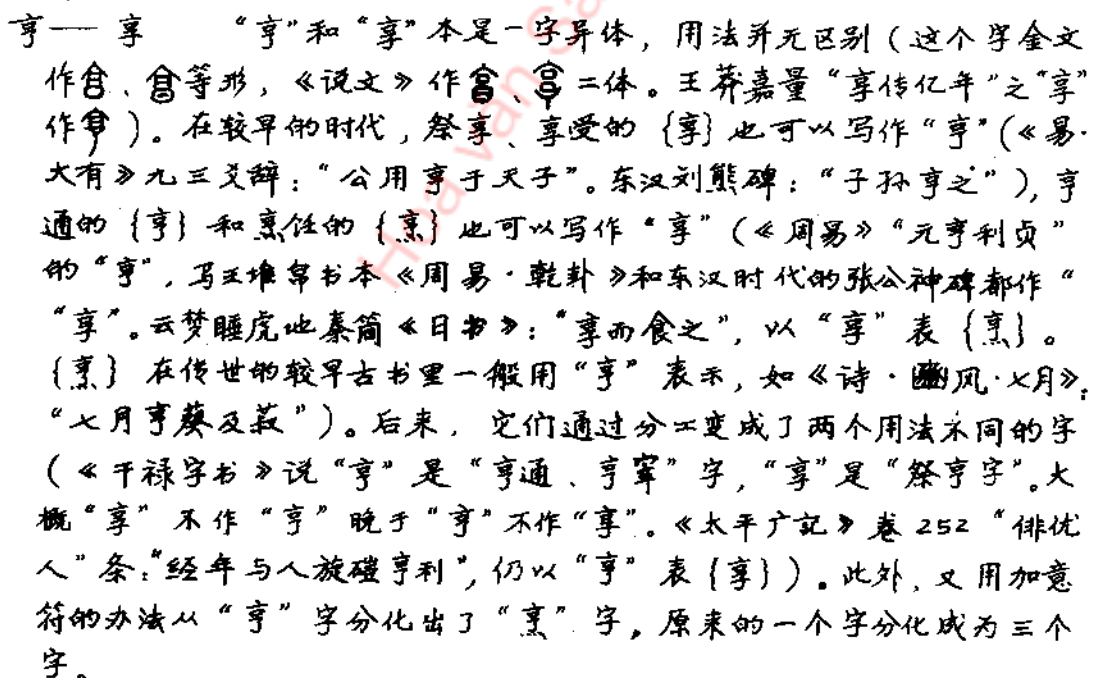 亨——享 “亨”和“享”本是一字异体，用法并无区别（这个字金文
作、等形，《说文》作、二体。王莽嘉量“享传亿年”之“享”
作）。在较早的时代，祭享、享受的｛享｝也可以写作“亨”（《易·
大有》九三爻辞：“公用亨于天子”。东汉刘熊碑：“子孙亨之”），亨
通的｛亨｝和烹饪的｛烹｝也可以写作“享”（《周易》“元亨利贞”
的“亨”，马王堆帛书本《周易·乾卦》和东汉时代的张公神碑都作“
“享”。云梦睡虎地秦简《日书》：“享而食之”，以“享”表｛烹｝。
｛烹｝在传世的较早古书里一般用“亨”表示，如《诗·豳风·七月》：
“七月亨葵及菽”）。后来，它们通过分工变成了两个用法不同的字
（《干禄字书》说“亨”是“亨通、亨宰”字，“享”是“祭享字”。大
概“享”不作“亨”晚于“亨”不作“享”。《太平广记》卷252“俳优
人”条：“经年与人旋磑亨利”，仍以“亨”表｛享｝）。此外，又用加意
符的办法从“亨”字分化出了“烹”字。原来的一个字分化成为三个
字。
Hoa văn Sa